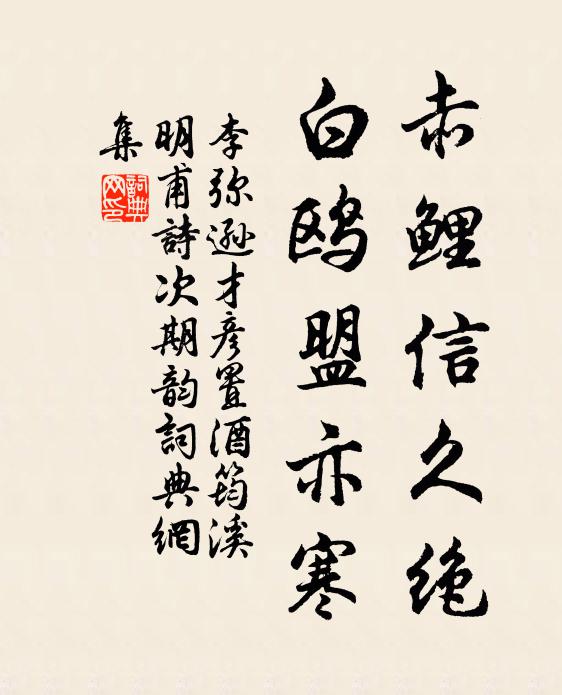 赤鲤信久绝
白鸥盟亦寒
李弥逊才彦置酒筠溪
明甫詩次期韵詞典網
集
詞典網印